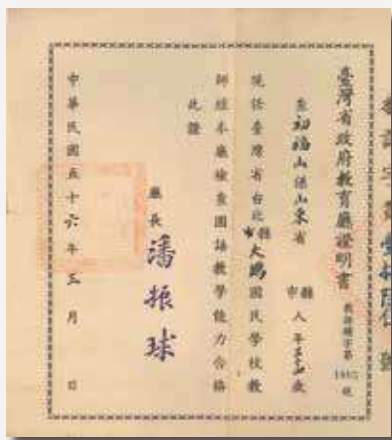 臺灣省政府教育廳證明書
查初福山係山東省 縣市人年歲
現任臺灣省台北縣市大鵬國民學校教
師經本廳檢查國語教學能力合格
此證
廳長潘振球
中華民國五十六年三月 日